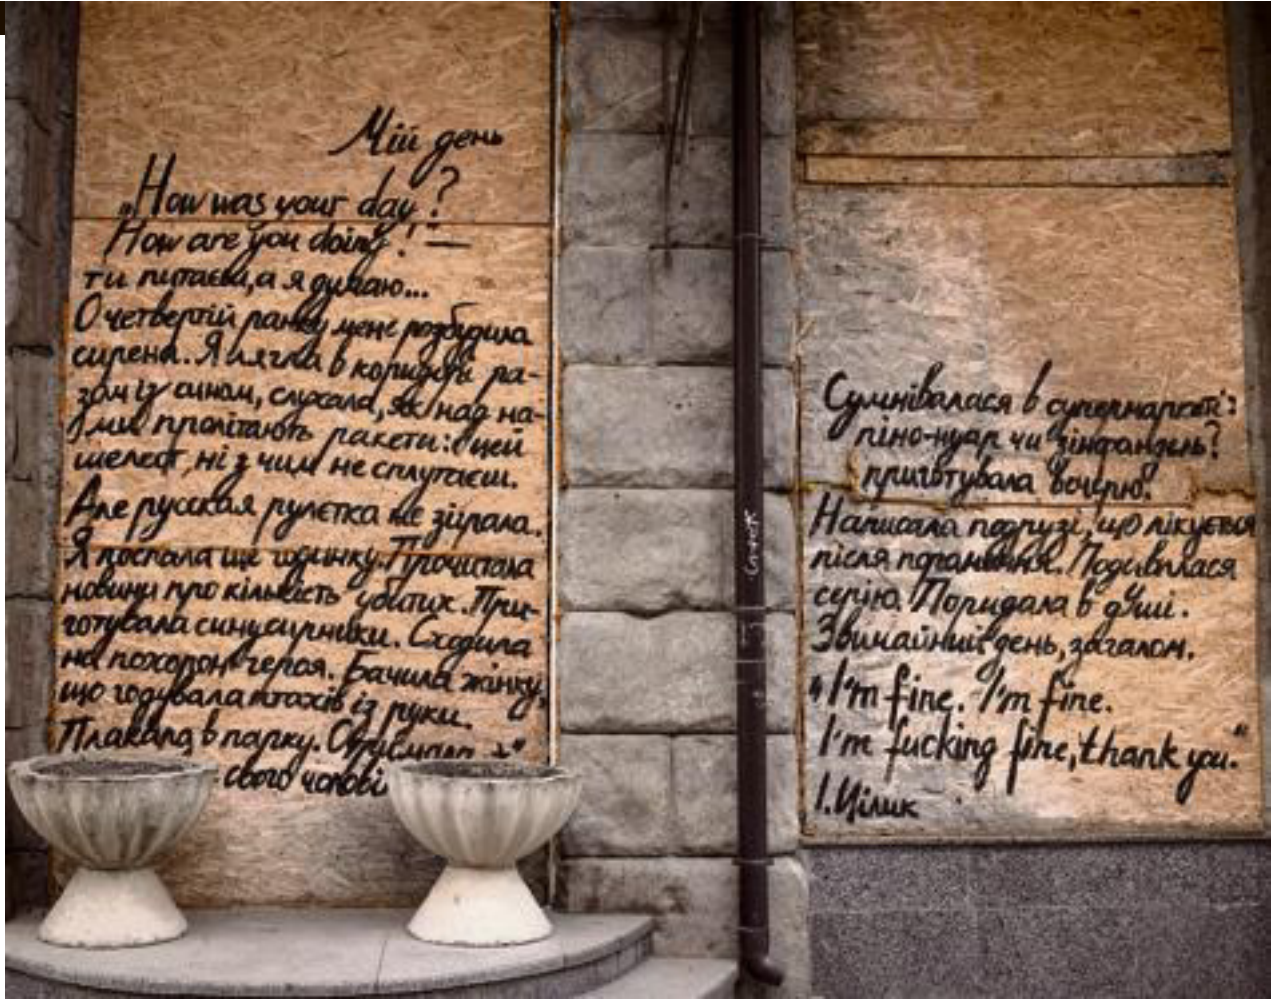 Мій день
„How was your day?
How are you doing?" —
ти питаєш, а я думаю...
О четвертій ранку мене розбудила
сирена. Я лягла в коридорі ра-
зом із сином, слухала, як над на-
ми пролітають ракети: цей
шелест, ні з чим не сплутаєш.
Але русская рулєтка не зіграла.
Я поспала ще годинку. Прочитала
новини про кількість убитих. При-
готувала сину сирники. Сходила
на похорон героя. Бачила жінку,
що годувала птахів із руки.
Плакала в парку.
свого чолові
Сумнівалася в супермаркеті:
піно-нуар чи зінфандель?
приготувала вечерю.
Написала подрузі, що лікується
після поранення. Подивилася
серію. Поридала в душі.
Звичайний день, загалом.
„I'm fine. I'm fine.
I'm fucking fine, thank you."
І. Цілик